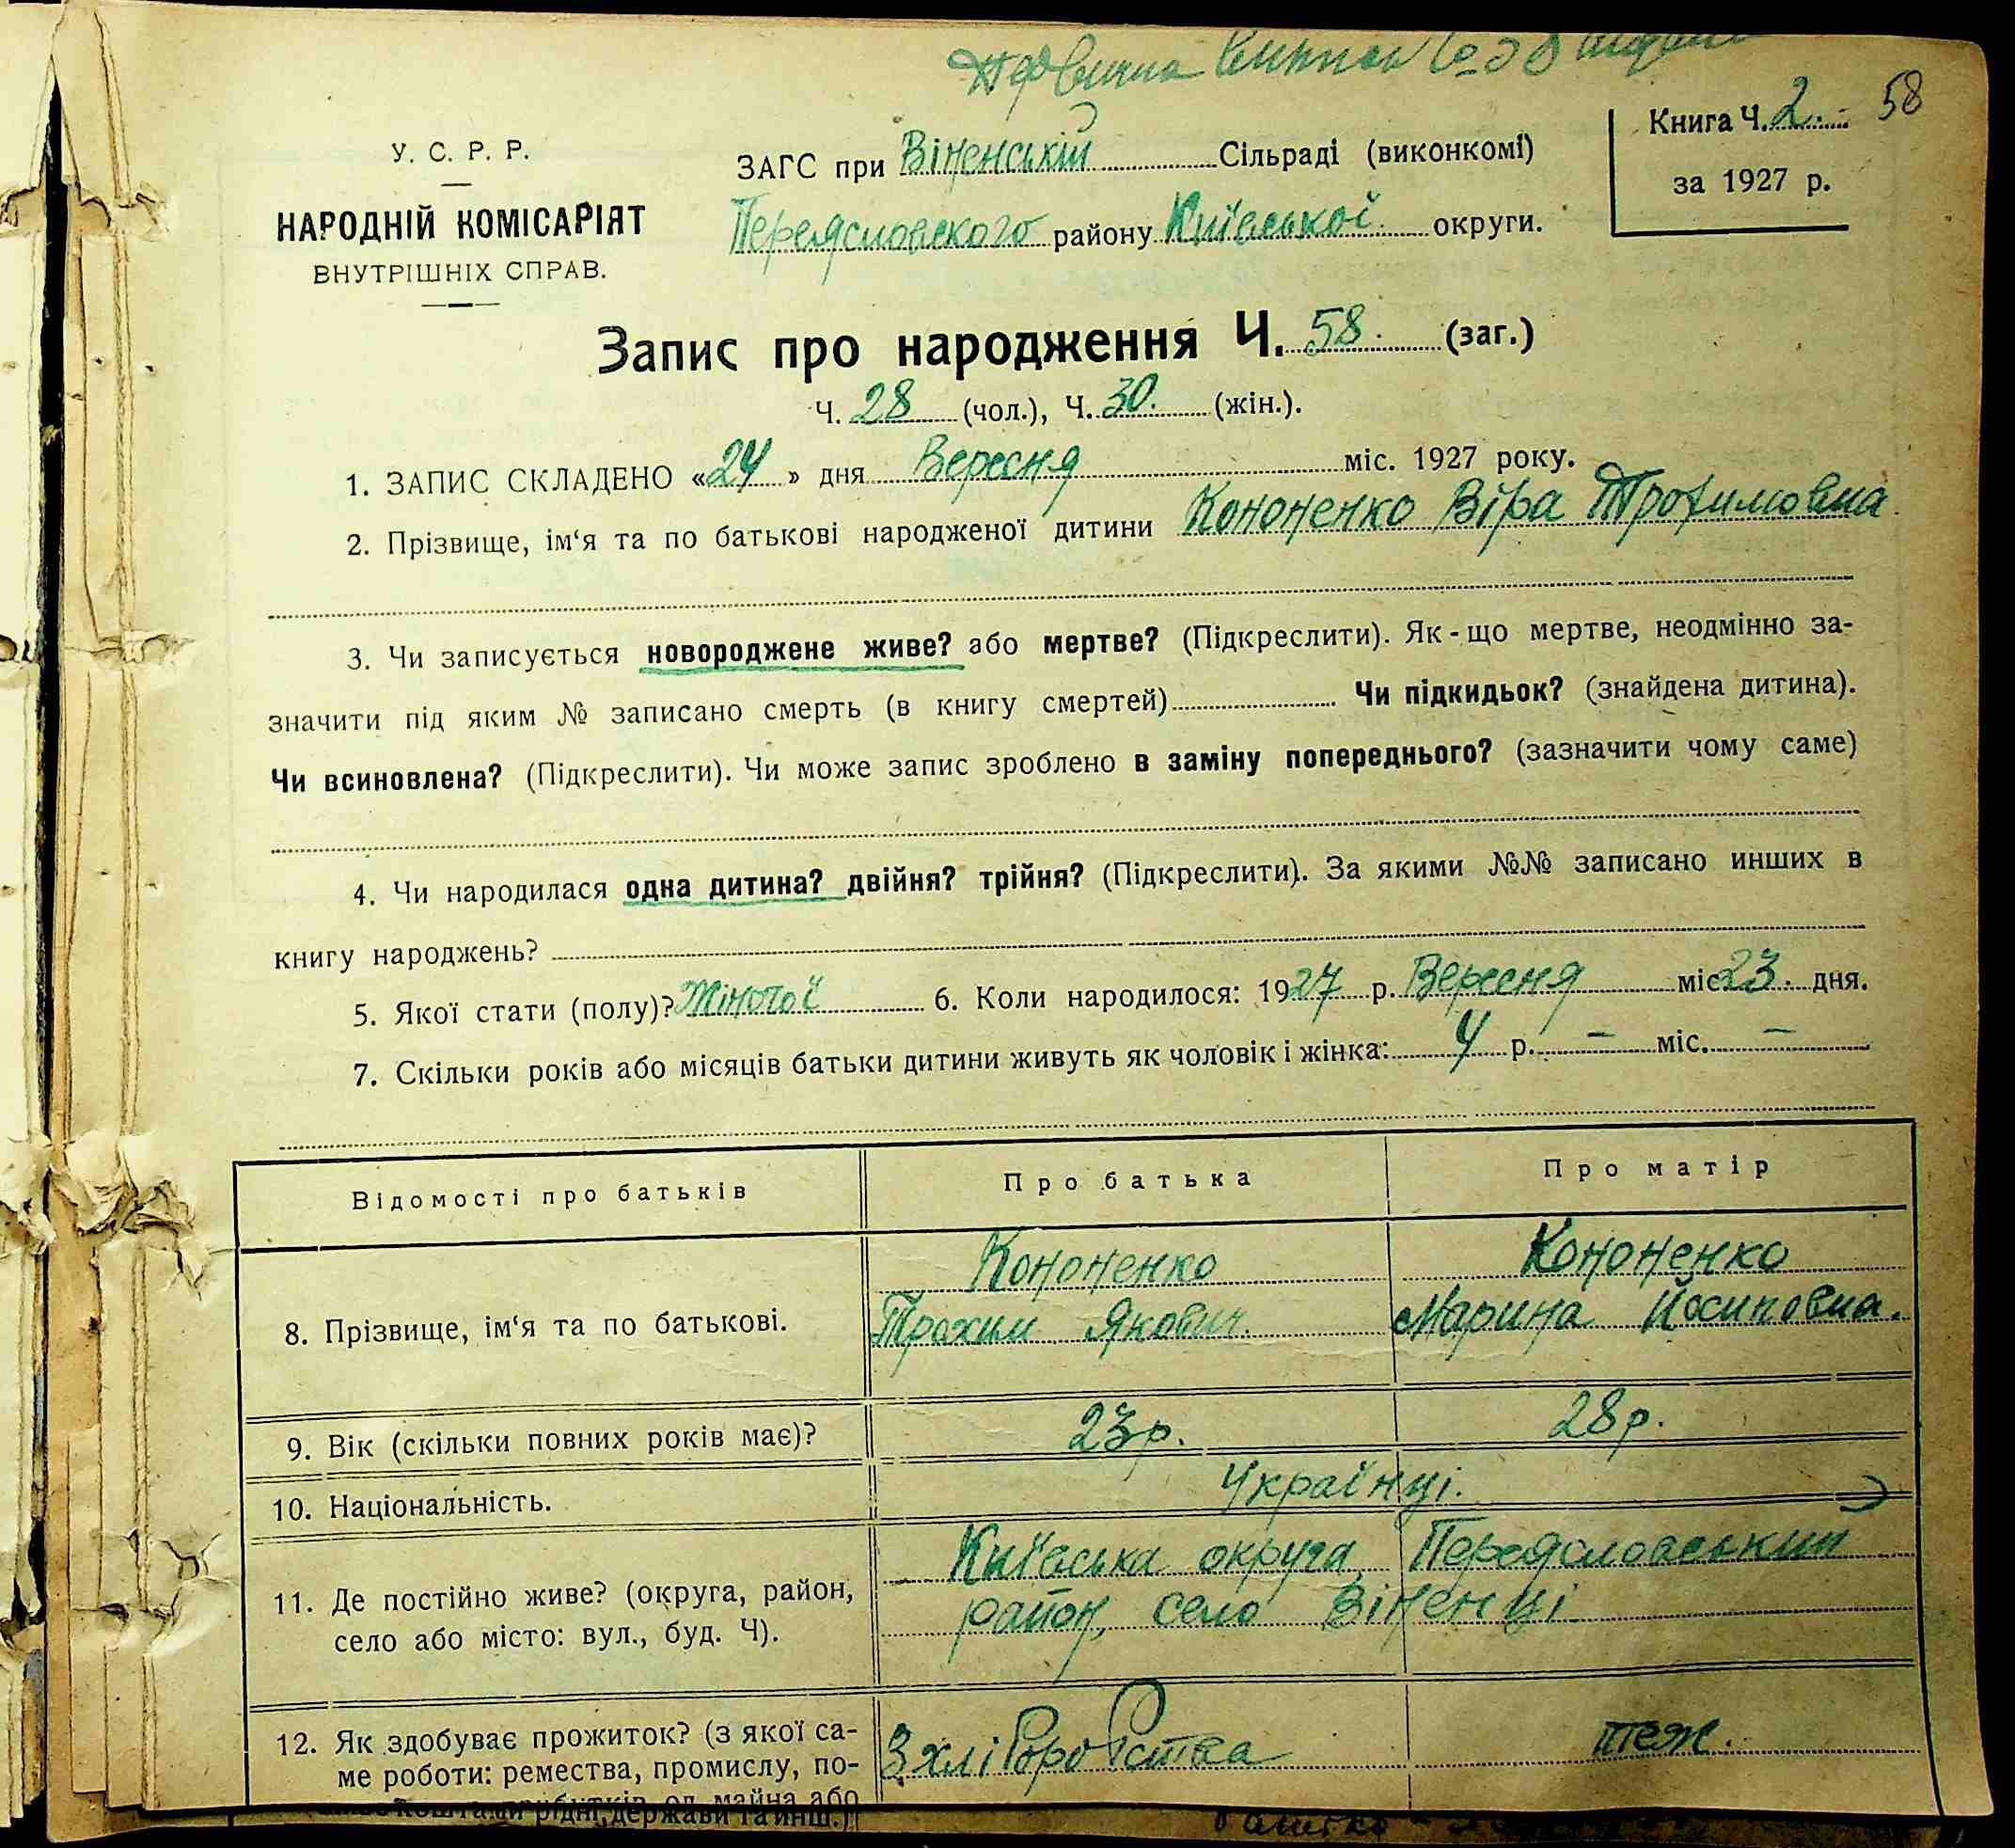 58
Книга Ч. 2.
за 1927 р.
У. С. Р. Р.
НАРОДНІЙ КОМІСАРІЯТ
ВНУТРІШНІХ СПРАВ.
ЗАГС при Віненській Сільраді (виконкомі)
Переясловского району Київської округи.
Запис про народження Ч. 58. (заг.)
Ч. 28 (чол.), Ч. 30. (жін.).
1. ЗАПИС СКЛАДЕНО «24» дня Вересня міс. 1927 року.
2. Прізвище, ім‘я та по батькові народженої дитини Кононенко Віра Трофимовна
3. Чи записується новороджене живе? або мертве? (Підкреслити). Як-що мертве, неодмінно за-
значити під яким № записано смерть (в книгу смертей) Чи підкидьок? (знайдена дитина).
Чи всиновлена? (Підкреслити). Чи може запис зроблено в заміну попереднього? (зазначити чому саме)
4. Чи народилася одна дитина? двійня? трійня? (Підкреслити). За якими №№ записано инших в
книгу народжень?
5. Якої стати (полу)? Жіночої 6. Коли народилося: 1927 р. Вересня міс 23. дня.
7. Скільки років або місяців батьки дитини живуть як чоловік і жінка: 4 р. — міс. —
Відомості про батьків Про батька Про матір
Кононенко Кононенко
8. Прізвище, ім‘я та по батькові. Трохим Якович Марина Йосиповна.
9. Вік (скільки повних років має)? 23р. 28р.
10. Національність. Українці.
Київська округа, Переясловський
11. Де постійно живе? (округа, район, район, село Віненці
село або місто: вул., буд. Ч).
12. Як здобуває прожиток? (з якої са- З хліборобства теж.
ме роботи: ремества, промислу, по-
майна або
рідні, держави та инш.)